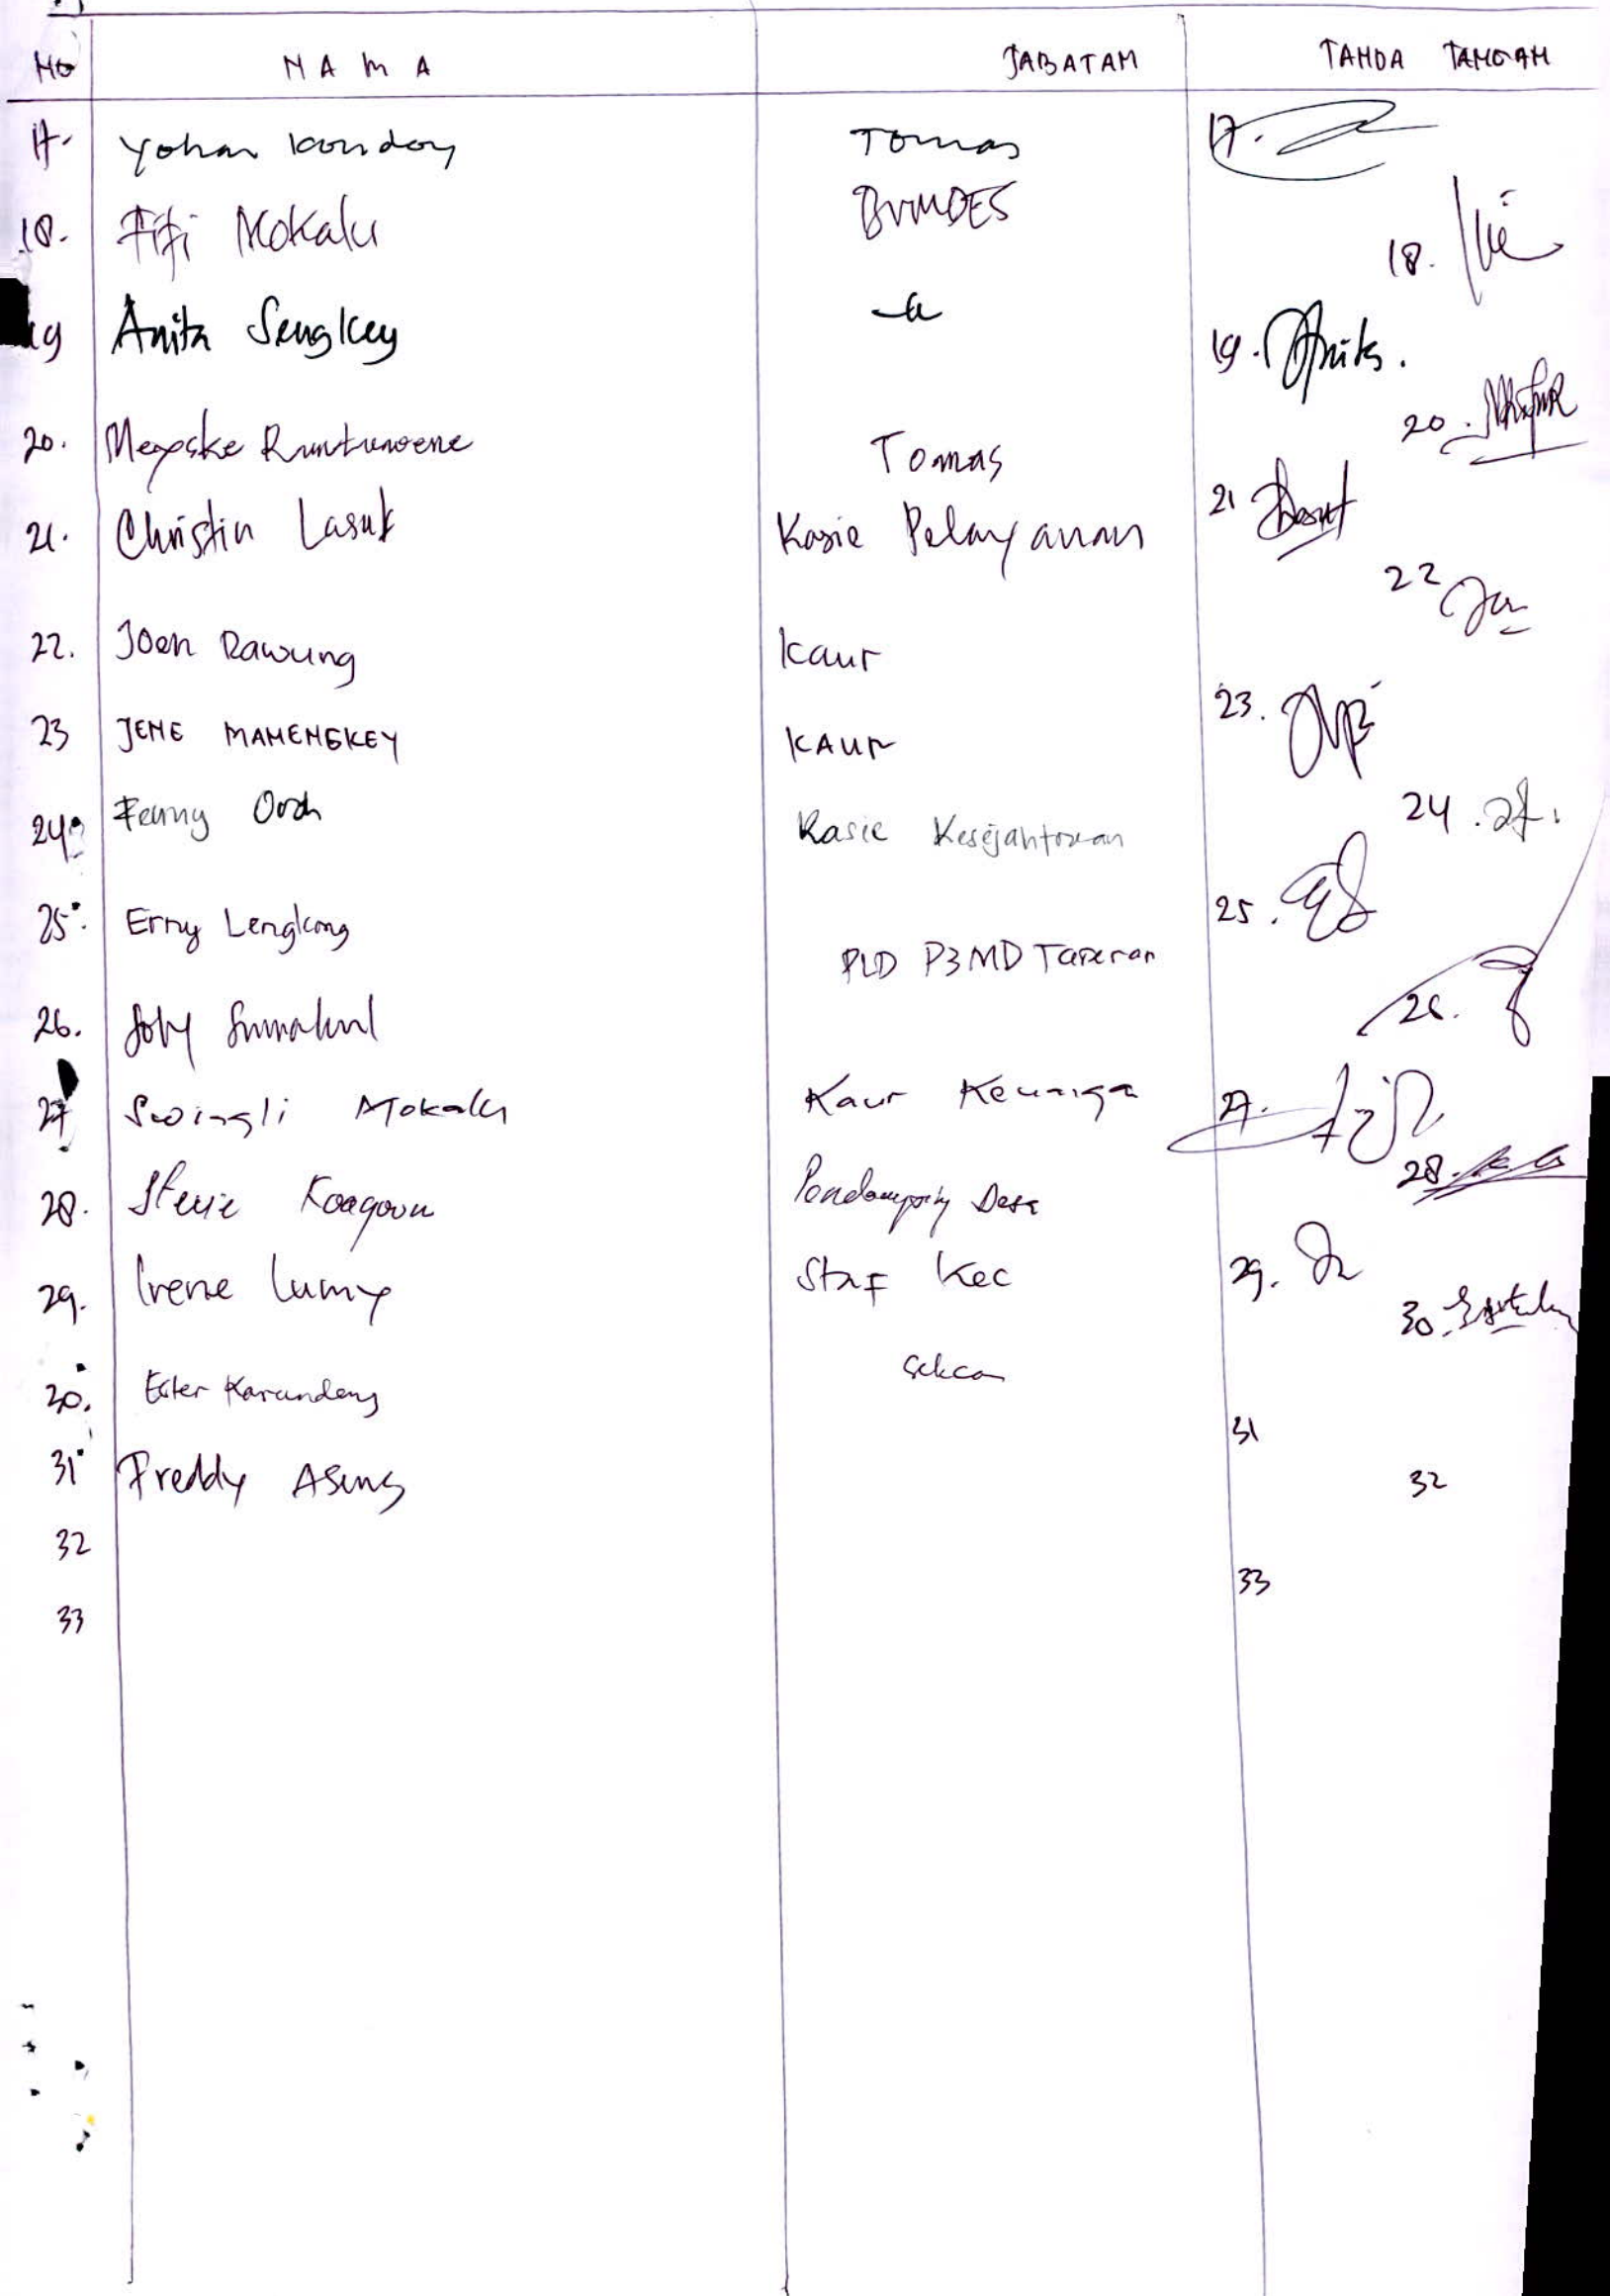 NO NAMA JABATAN TANDA TANGAN
17. Yohan Kondoy Tomas 17.
18. Fifi Mokalu BUMDES 18.
19 Anita Sengkey 19. Anita.
20. Meyske Runtuwene Tomas 20.
21. Christin Lasut Kasie Pelayanan 21
22. Joen Rawung Kaur 22
23 JENE MAMENGKEY KAUR 23.
24. Fenny Kasie 24.
25. Erny Lengkong PLD P3MD Tareran 25.
26. 26.
27 Swingli Mokalu Kaur 27.
28. Stevie Pendamping Desa 28.
29. Irene Lumy Staf Kec 29.
30. Ester Karundeng Sekcam 30.
31. Freddy 31
32 32
33 33